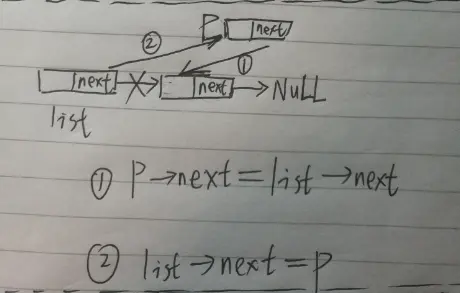 P next
②
①
next next → NULL
list
① P→next=list→next
② list→next=P